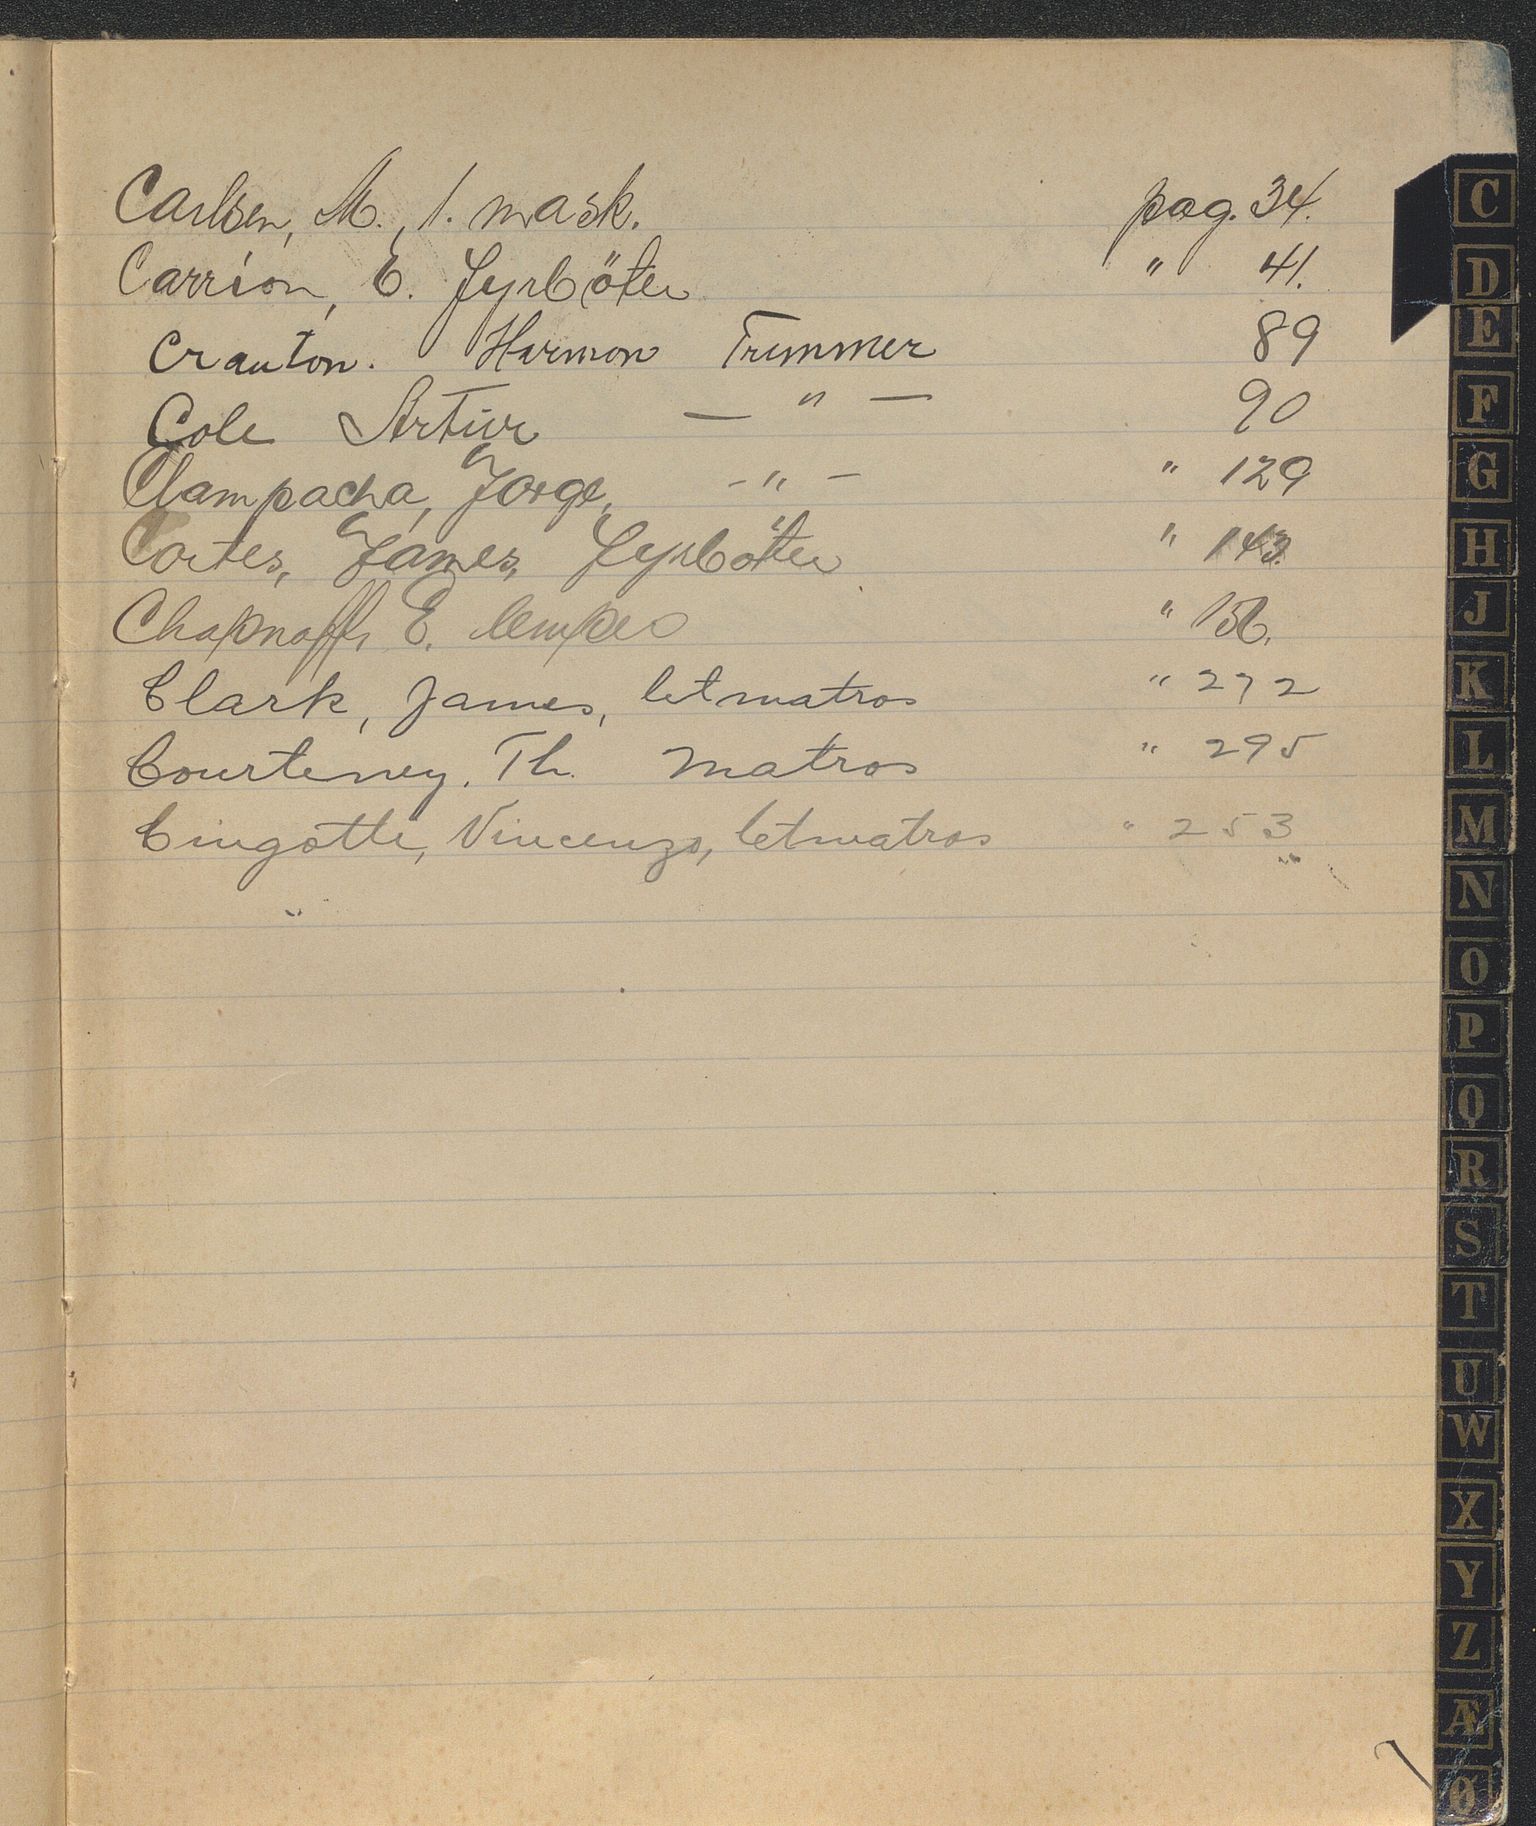 Carlsen, M., 1. mask. pag. 34.
Carrion, E. Fyrböter " 41.
Crauton. Harmon Trimmer 89
Cole Artur — " — 90
Clampacha, Jorge, - " - " 129
Cortes, James, Fyrböter " 143.
Chapnoff, E. lemper " 156.
Clark, James, letmatros " 272
Courteney. Th. Matros " 295
Cingotti, Vincenzo, letmatros " 253
C
D
E
F
G
H
J
K
L
M
N
O
P
Q
R
S
T
U
W
X
Y
Z
Æ
Ø